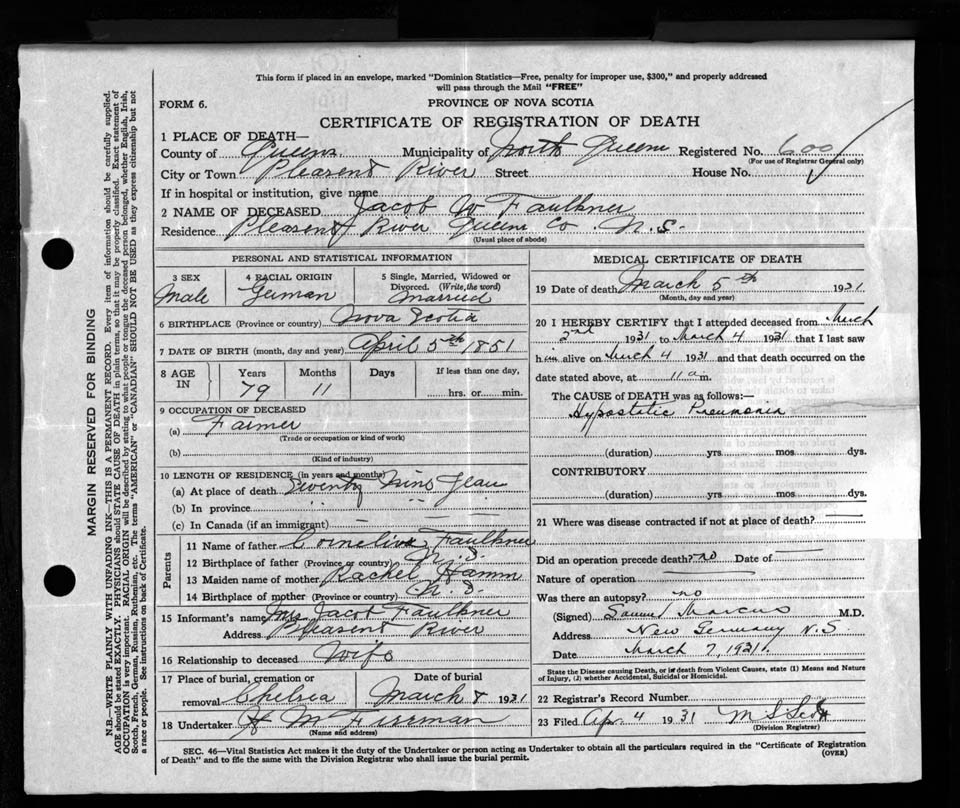 This form if placed in an envelope, marked "Dominion Statistics—Free, penalty for improper use, $300," and properly addressed
will pass through the Mail "FREE"
FORM 6.
PROVINCE OF NOVA SCOTIA
CERTIFICATE OF REGISTRATION OF DEATH
1 PLACE OF DEATH—
County of Queens Municipality of North Queens Registered No. 600
(For use of Registrar General only)
City or Town Pleasent River Street House No.
If in hospital or institution, give name
2 NAME OF DECEASED Jacob W Faulkner
Residence Pleasent River Queens Co. N.S.
(Usual place of abode)
PERSONAL AND STATISTICAL INFORMATION
3 SEX Male
4 RACIAL ORIGIN German
5 Single, Married, Widowed or Divorced. (Write the word) Married
6 BIRTHPLACE (Province or country) Nova Scotia
7 DATE OF BIRTH (month, day and year) April 5th 1851
8 AGE IN Years 79 Months 11 Days If less than one day, hrs. or min.
9 OCCUPATION OF DECEASED
(a) Farmer
(Trade or occupation or kind of work)
(b)
(Kind of industry)
10 LENGTH OF RESIDENCE (in years and months)
(a) At place of death Seventy Nine Years
(b) In province " " "
(c) In Canada (if an immigrant) — — —
Parents
11 Name of father Cornelius Faulkner
12 Birthplace of father (Province or country) N.S.
13 Maiden name of mother Rachel Hamm
14 Birthplace of mother (Province or country) N.S.
15 Informant's name Mrs Jacob Faulkner
Address Pleasent River
16 Relationship to deceased Wife
17 Place of burial, cremation or removal Chelsea Date of burial March 8 1931
18 Undertaker H M
(Name and address)
MEDICAL CERTIFICATE OF DEATH
19 Date of death March 5th 1931
(Month, day and year)
20 I HEREBY CERTIFY that I attended deceased from March
2nd 1931 to March 4 1931 that I last saw
him alive on March 4 1931 and that death occurred on
date stated above, at 11 a m.
The CAUSE of DEATH was as follows:
Hypostatic Pneumonia
(duration) yrs. mos. dys.
CONTRIBUTORY
(duration) yrs. mos. dys.
21 Where was disease contracted if not at place of death? —
Did an operation precede death? no Date of —
Nature of operation —
Was there an autopsy? no
(Signed) Samuel Marcus M.D.
Address New Germany N.S.
Date March 7, 1931.
State the Disease causing Death, or in death from Violent Causes, state (1) Means and Nature
of Injury, (2) whether Accidental, Suicidal or Homicidal.
22 Registrar's Record Number
23 Filed Apr. 4 1931
(Division Registrar)
SEC. 46—Vital Statistics Act makes it the duty of the Undertaker or person acting as Undertaker to obtain all the particulars required in the "Certificate of Registration
of Death" and to file the same with the Division Registrar who shall issue the burial permit.
(OVER)
MARGIN RESERVED FOR BINDING
N.B.—WRITE PLAINLY WITH UNFADING INK—THIS IS A PERMANENT RECORD. Every item of information should be carefully supplied.
AGE should be stated EXACTLY. PHYSICIANS should STATE CAUSE OF DEATH in plain terms, so that it may be properly classified. Exact statement of
OCCUPATION is very important. RACIAL ORIGIN will be described by stating to what people or tongue the deceased person belonged, whether English, Irish,
Scotch, French, German, Russian, Ruthenian, etc. The terms "AMERICAN" or "CANADIAN" SHOULD NOT BE USED as they express citizenship but not
a race or people. See instructions on back of Certificate.